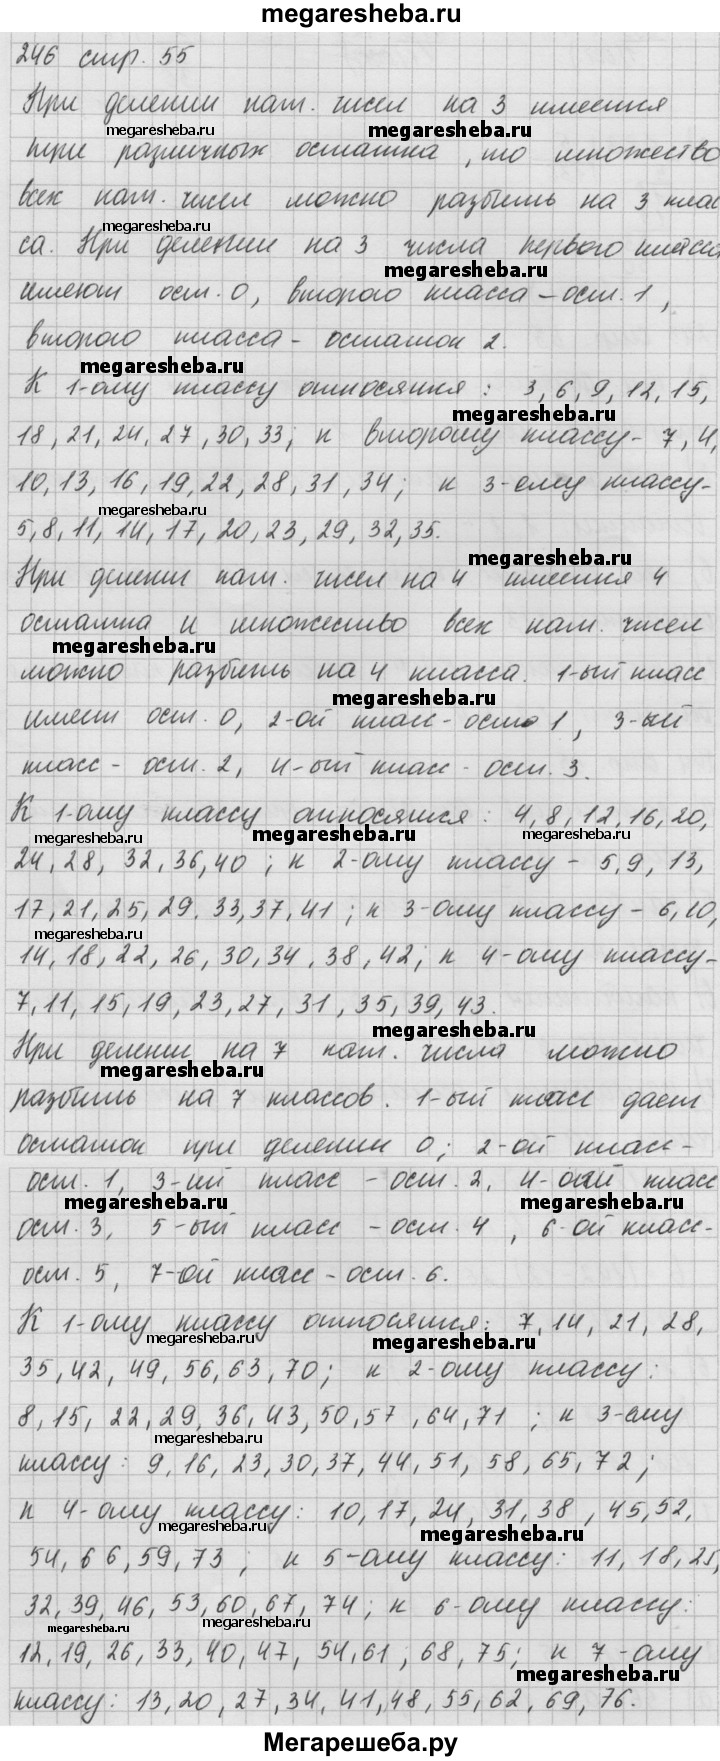 megaresheba.ru
246 стр. 55
При делении нат. чисел на 3 имеется
megaresheba.ru megaresheba.ru
три различных остатка, то множество
всех нат. чисел можно разбить на 3 клас
megaresheba.ru
са. При делении на 3 числа первого класса
megaresheba.ru
имеют ост. 0, второго класса - ост. 1,
второго класса - остаток 2.
megaresheba.ru
К 1-ому классу относятся: 3, 6, 9, 12, 15,
megaresheba.ru
18, 21, 24, 27, 30, 33; к второму классу - 7, 4,
10, 13, 16, 19, 22, 28, 31, 34; к 3-ему классу -
megaresheba.ru
5, 8, 11, 14, 17, 20, 23, 29, 32, 35.
megaresheba.ru
При делении нат. чисел на 4 имеется 4
остатка и множество всех нат. чисел
megaresheba.ru
можно разбить на 4 класса. 1-ый класс
megaresheba.ru
имеет ост. 0, 2-ой класс - ост 1, 3-ый
класс - ост. 2, 4-ый класс - ост. 3.
К 1-ому классу относятся: 4, 8, 12, 16, 20,
megaresheba.ru megaresheba.ru megaresheba.ru
24, 28, 32, 36, 40; к 2-ому классу - 5, 9, 13,
17, 21, 25, 29, 33, 37, 41; к 3-ому классу - 6, 10,
megaresheba.ru
14, 18, 22, 26, 30, 34, 38, 42; к 4-ому классу -
7, 11, 15, 19, 23, 27, 31, 35, 39, 43.
megaresheba.ru
При делении на 7 нат. числа можно
megaresheba.ru
разбить на 7 классов. 1-ый класс дает
остаток при делении 0; 2-ой класс -
ост. 1, 3-ий класс - ост. 2, 4-ый класс
megaresheba.ru megaresheba.ru
ост. 3, 5-ый класс - ост. 4, 6-ой класс -
ост. 5, 7-ой класс - ост. 6.
К 1-ому классу относятся: 7, 14, 21, 28,
megaresheba.ru megaresheba.ru
35, 42, 49, 56, 63, 70; к 2-ому классу:
8, 15, 22, 29, 36, 43, 50, 57, 64, 71; к 3-ему
megaresheba.ru
классу: 9, 16, 23, 30, 37, 44, 51, 58, 65, 72;
к 4-ому классу: 10, 17, 24, 31, 38, 45, 52,
megaresheba.ru megaresheba.ru
54, 66, 59, 73; к 5-ому классу: 11, 18, 25,
32, 39, 46, 53, 60, 67, 74; к 6-ому классу:
megaresheba.ru megaresheba.ru
12, 19, 26, 33, 40, 47, 54, 61, 68, 75; к 7-ому
megaresheba.ru
классу: 13, 20, 27, 34, 41, 48, 55, 62, 69, 76.
Мегарешеба.ру